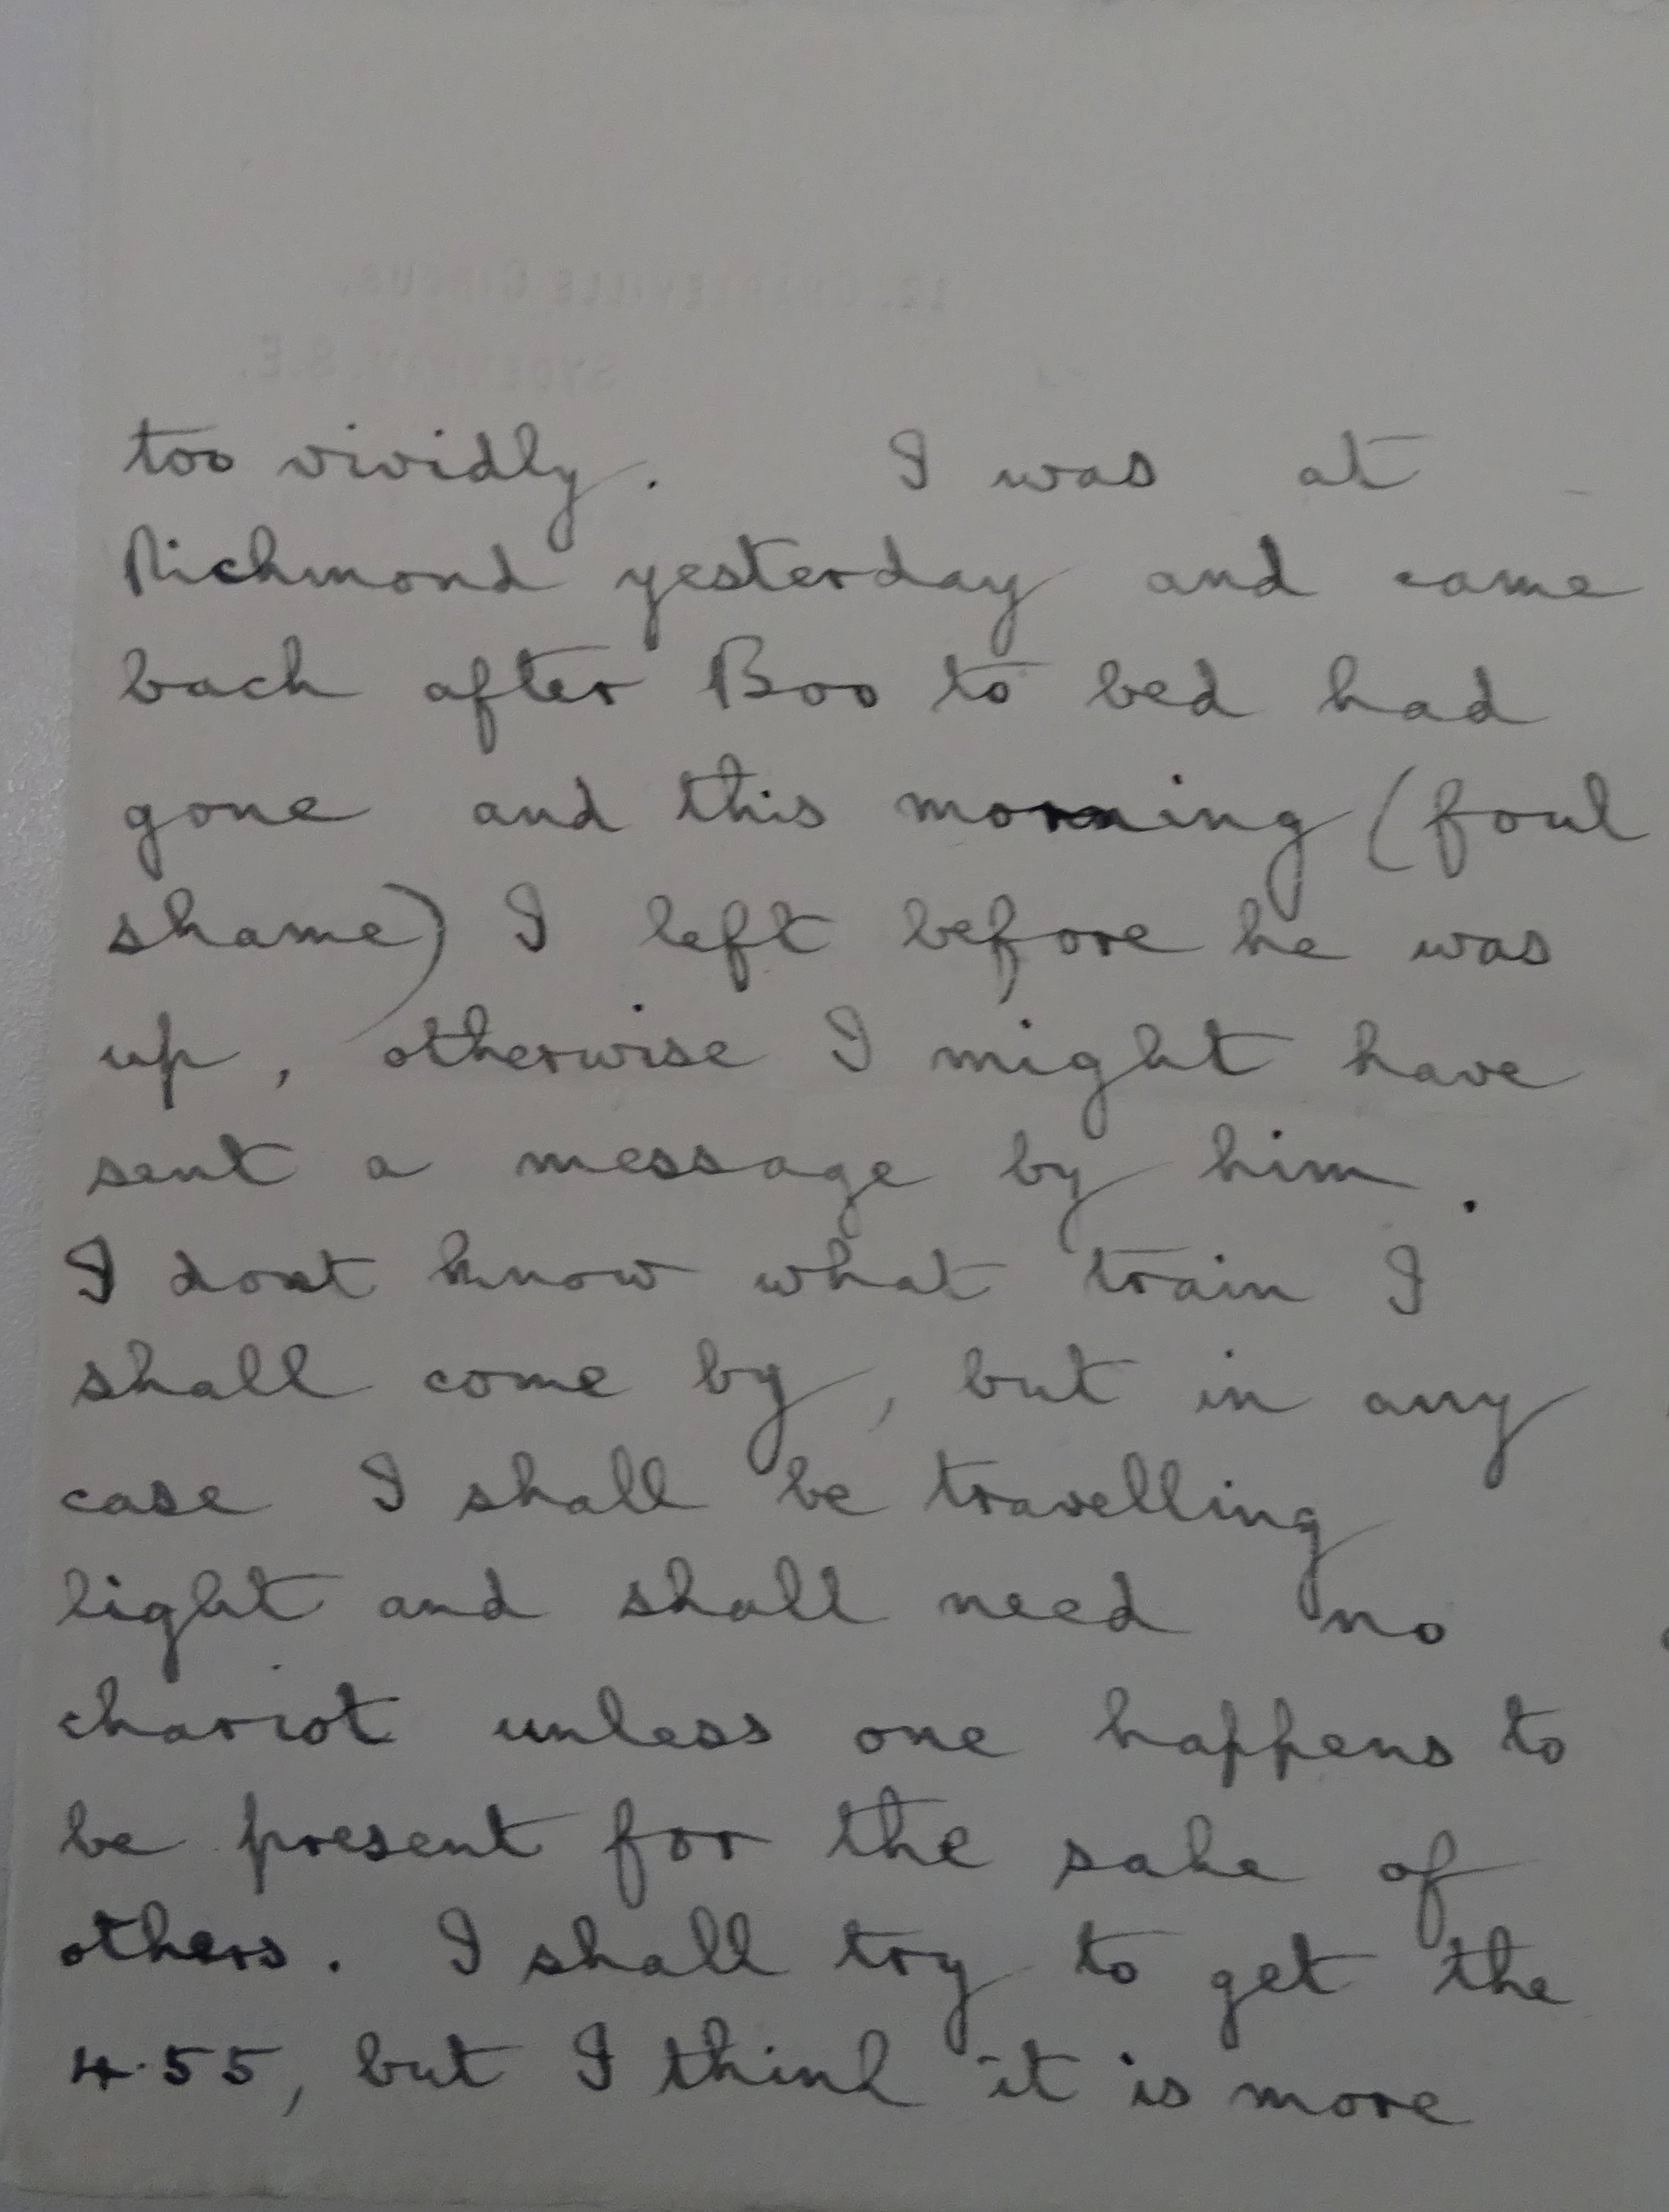 12, CHARLEVILLE CIRCUS,
SYDENHAM, S.E.
too vividly. I was at
Richmond yesterday and came
back after Boo to bed had
gone and this morning (foul
shame) I left before he was
up, otherwise I might have
sent a message by him.
I dont know what train I
shall come by, but in any
case I shall be travelling
light and shall need no
chariot unless one happens to
be present for the sake of
others. I shall try to get the
4.55, but I think it is more